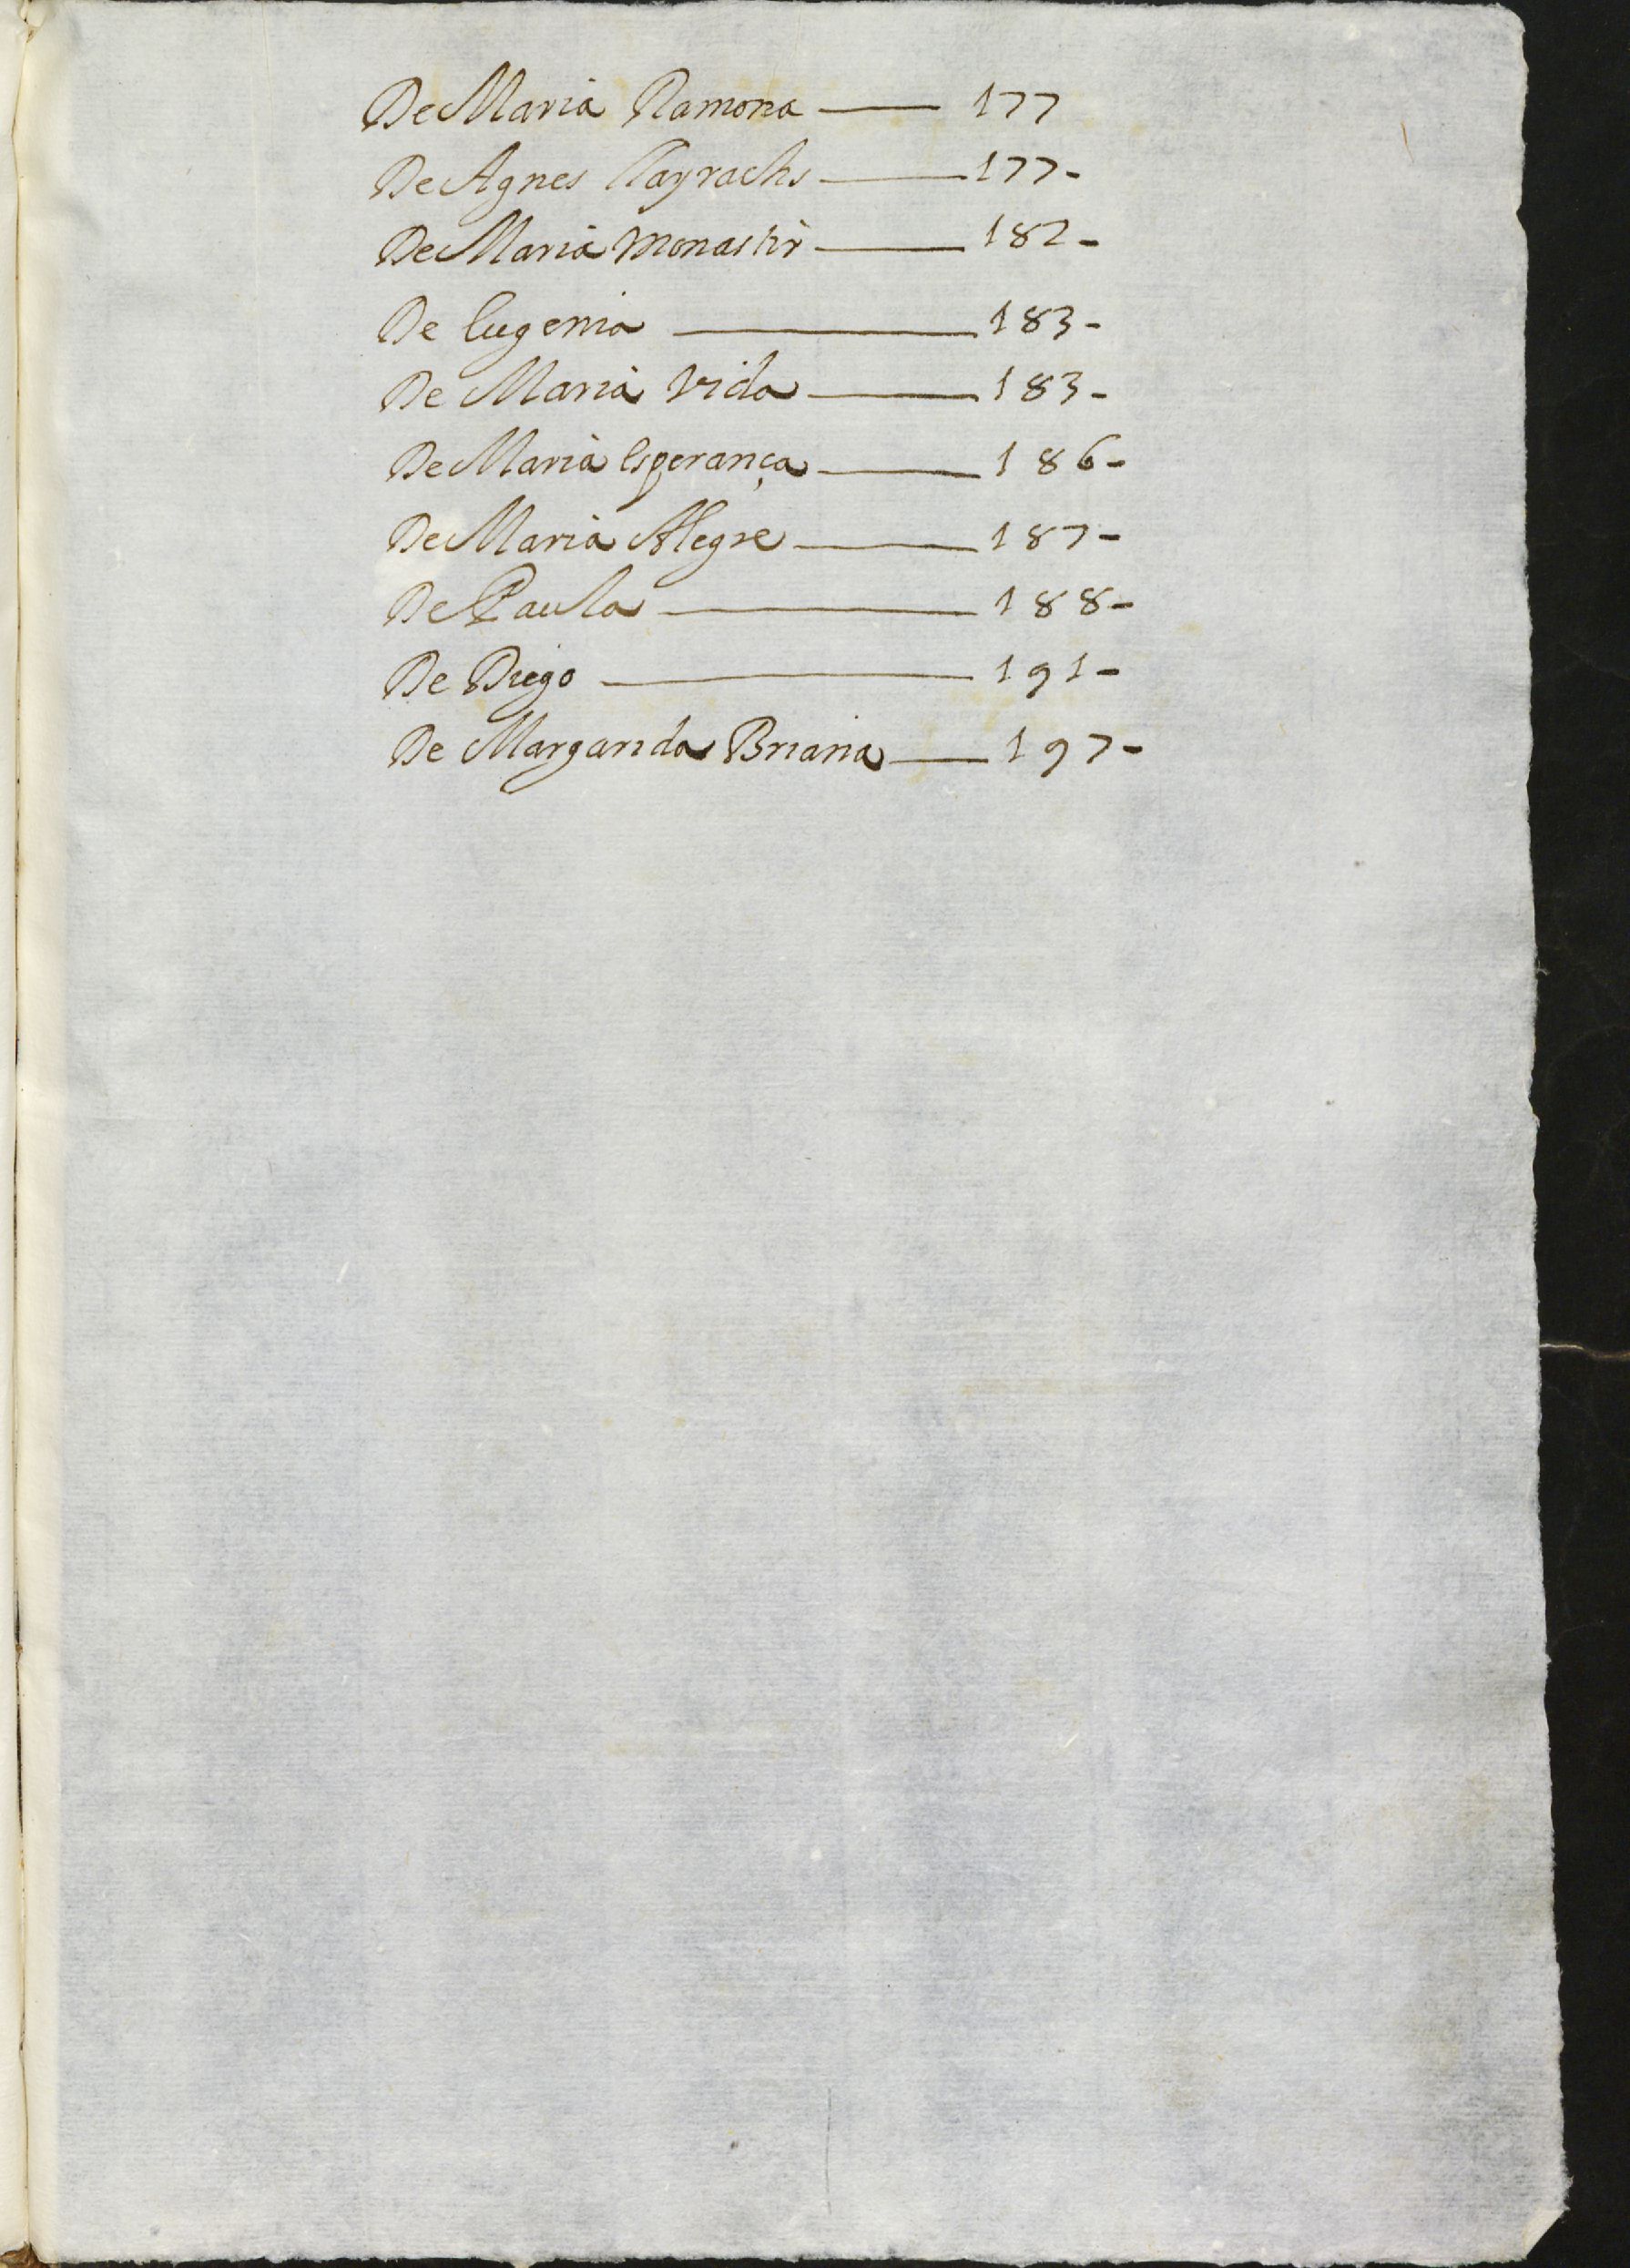 De Maria Ramona —— 177
De Agnes Tayrachs —— 177-
De Maria Monastir —— 182-
De Eugenia —— 183-
De Maria Vida —— 183-
De Maria Esperança —— 186-
De Maria Alegre —— 187-
De Paula —— 188-
De Diego —— 191-
De Margarida Briana —— 197-